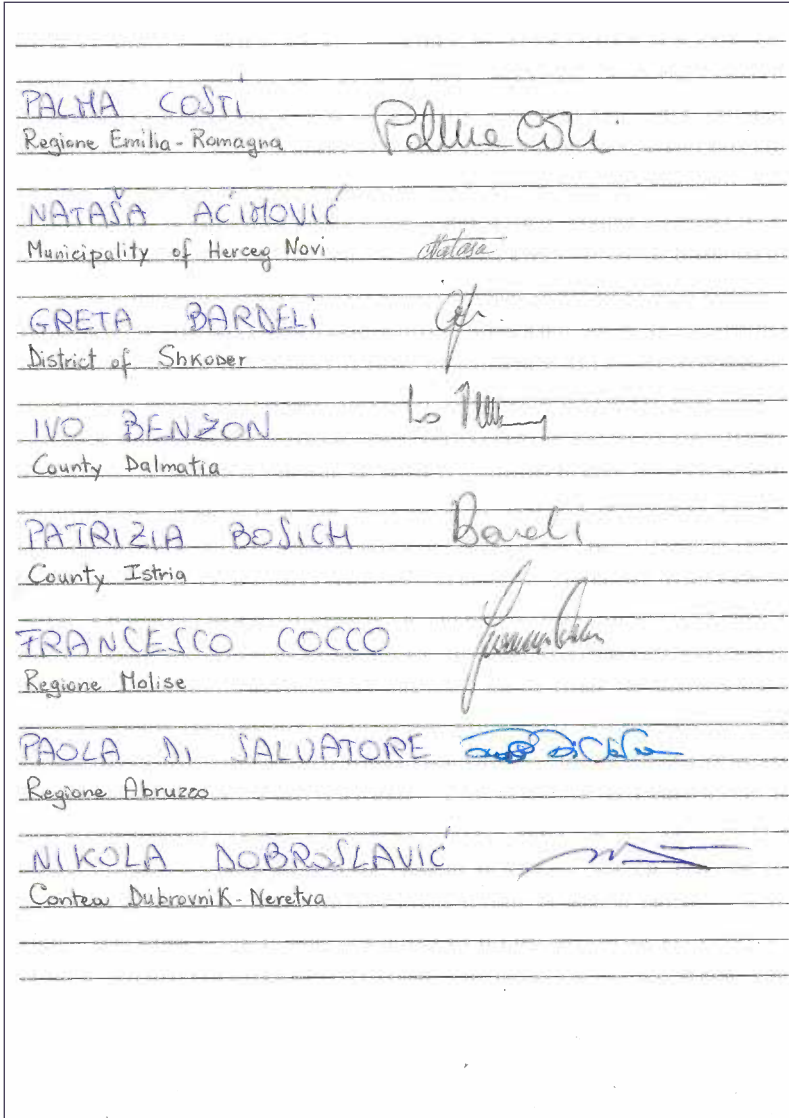 PALMA COSTI
Regione Emilia-Romagna Palma Costi
NATAŠA AĆIMOVIĆ
Municipality of Herceg Novi Nataša
GRETA BARDELI
District of Shkoder
IVO BENZON
County Dalmatia
PATRIZIA BOSICH
County Istria
FRANCESCO COCCO
Regione Molise
PAOLA DI SALVATORE
Regione Abruzzo
NIKOLA DOBROSLAVIĆ
Contea Dubrovnik-Neretva